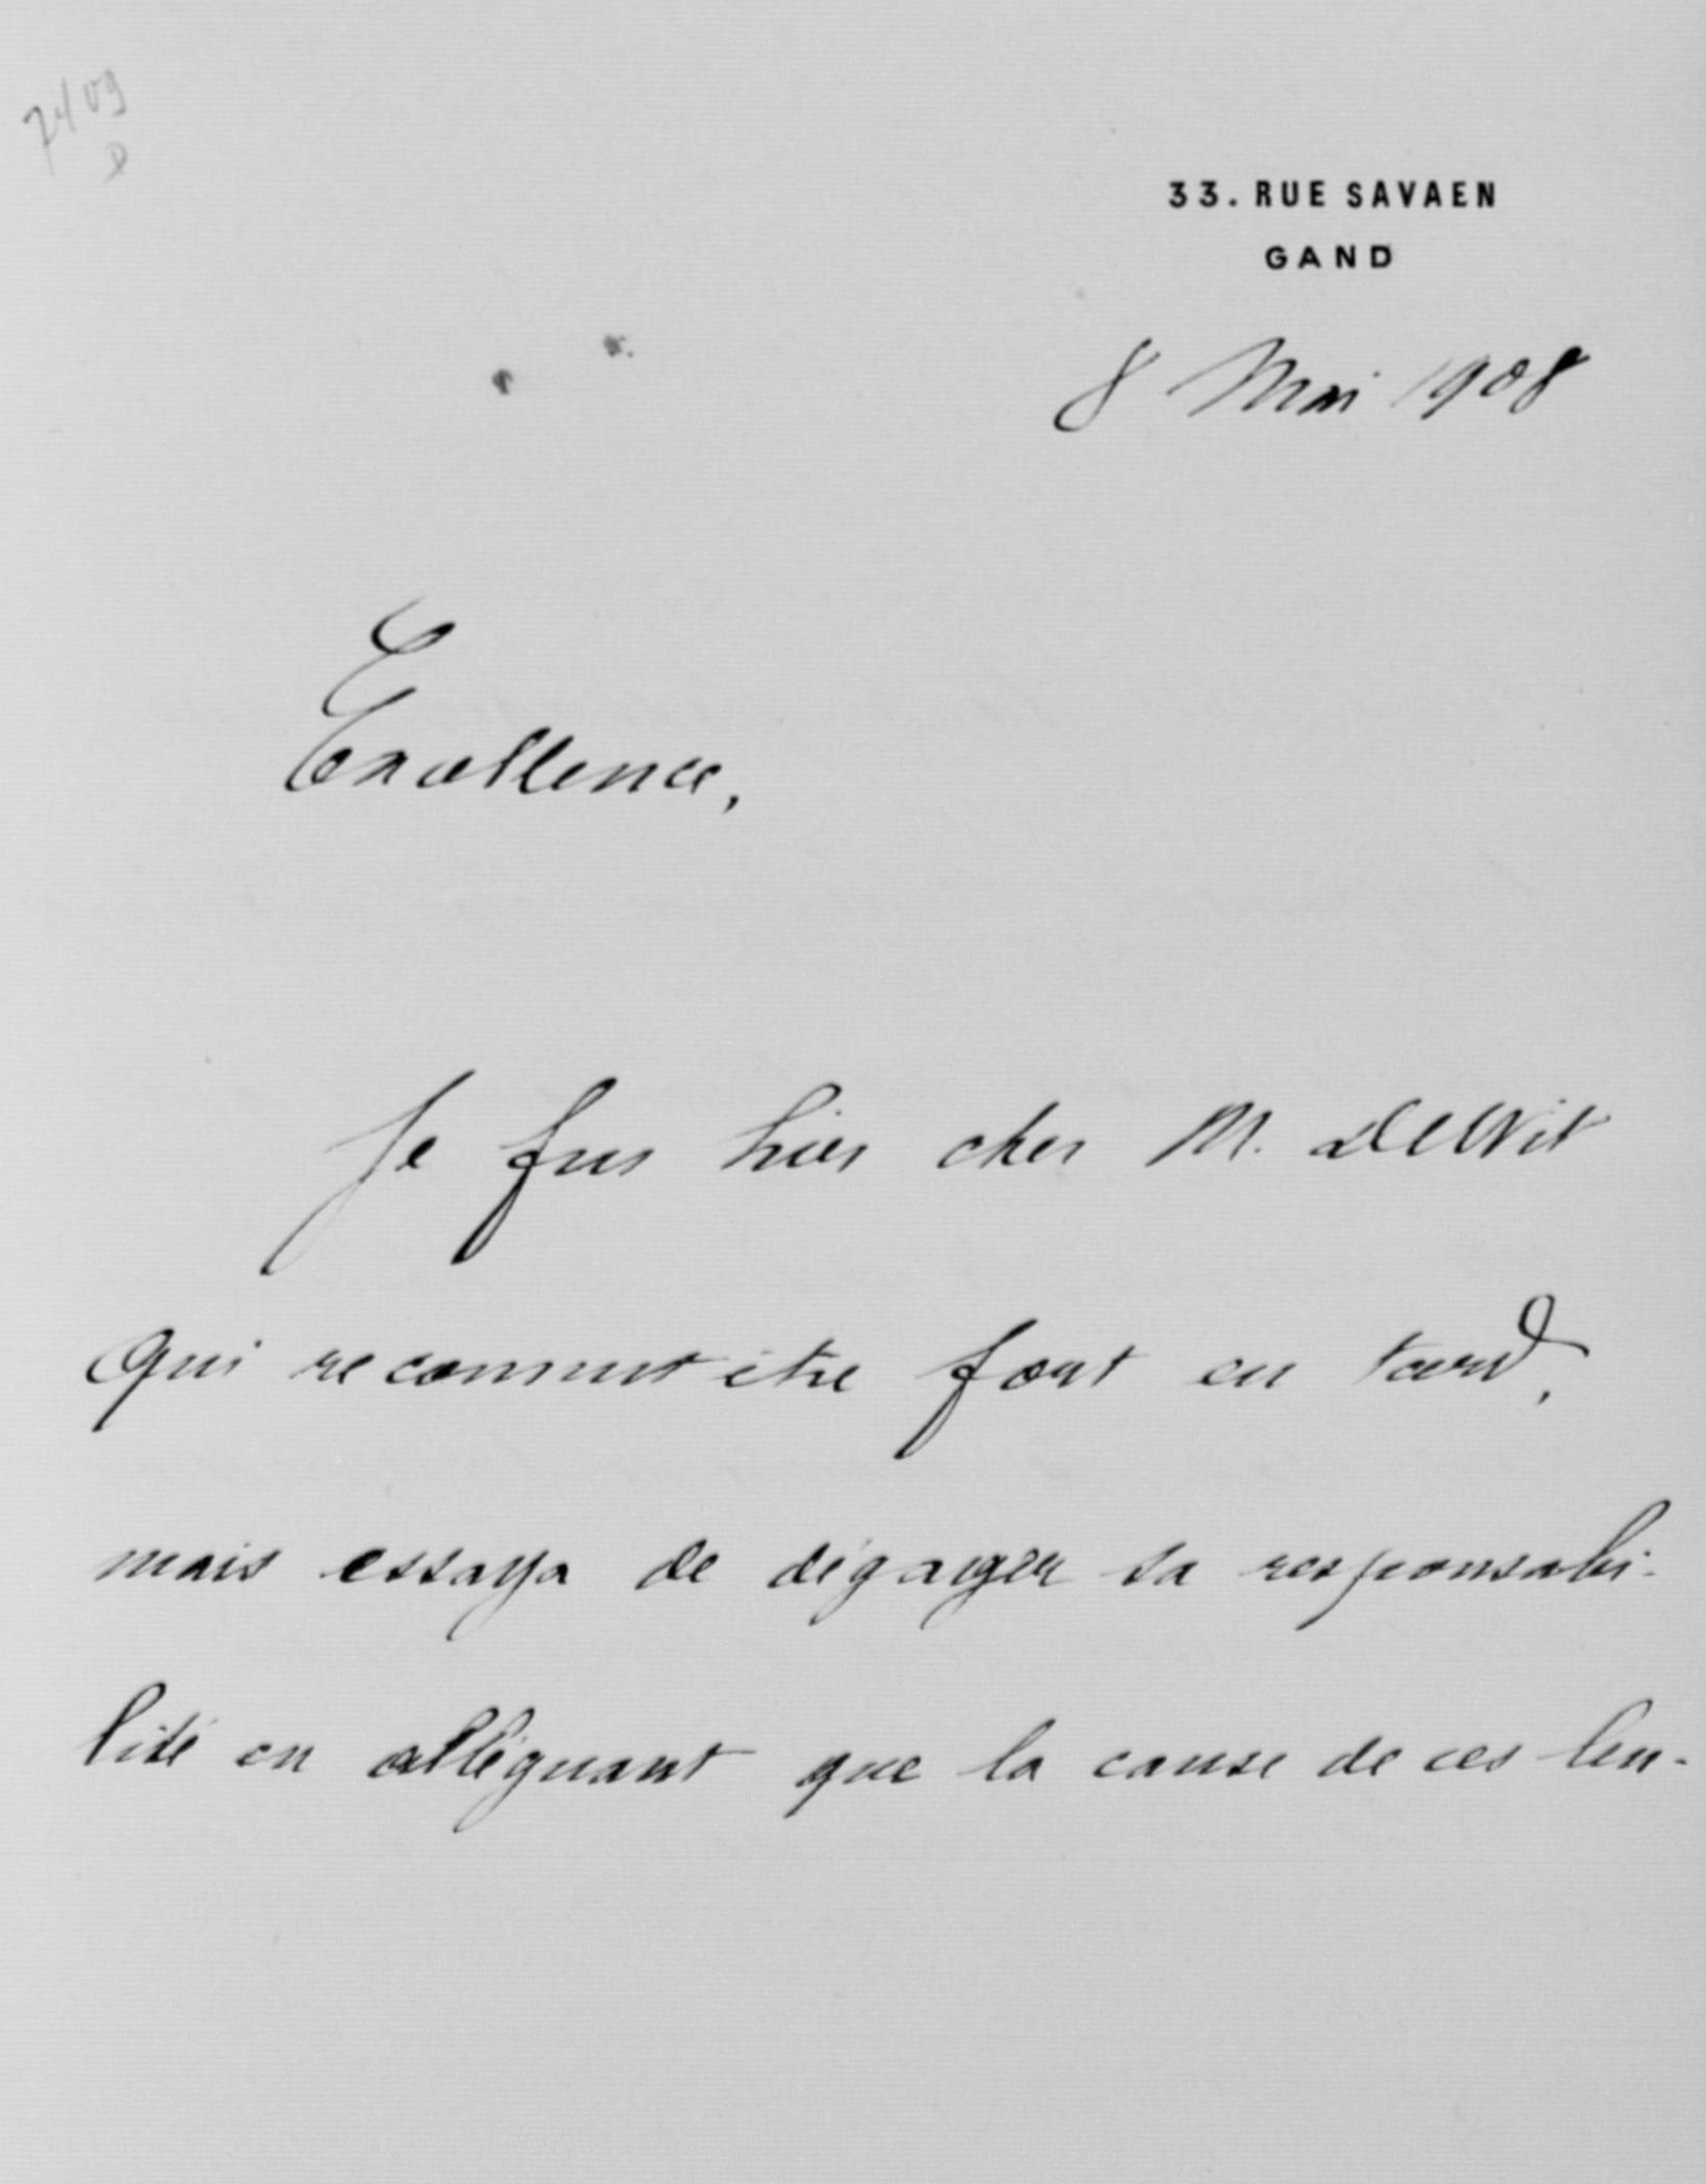 33. RUE SAVAEN
GAND
8 Mai 1908
Excellence,
Je fus hier chez M. De Wit
qui reconnut être fort en tard,
mais essaya de dégager sa responsabi-
lité en alléguant que la cause de ces len-